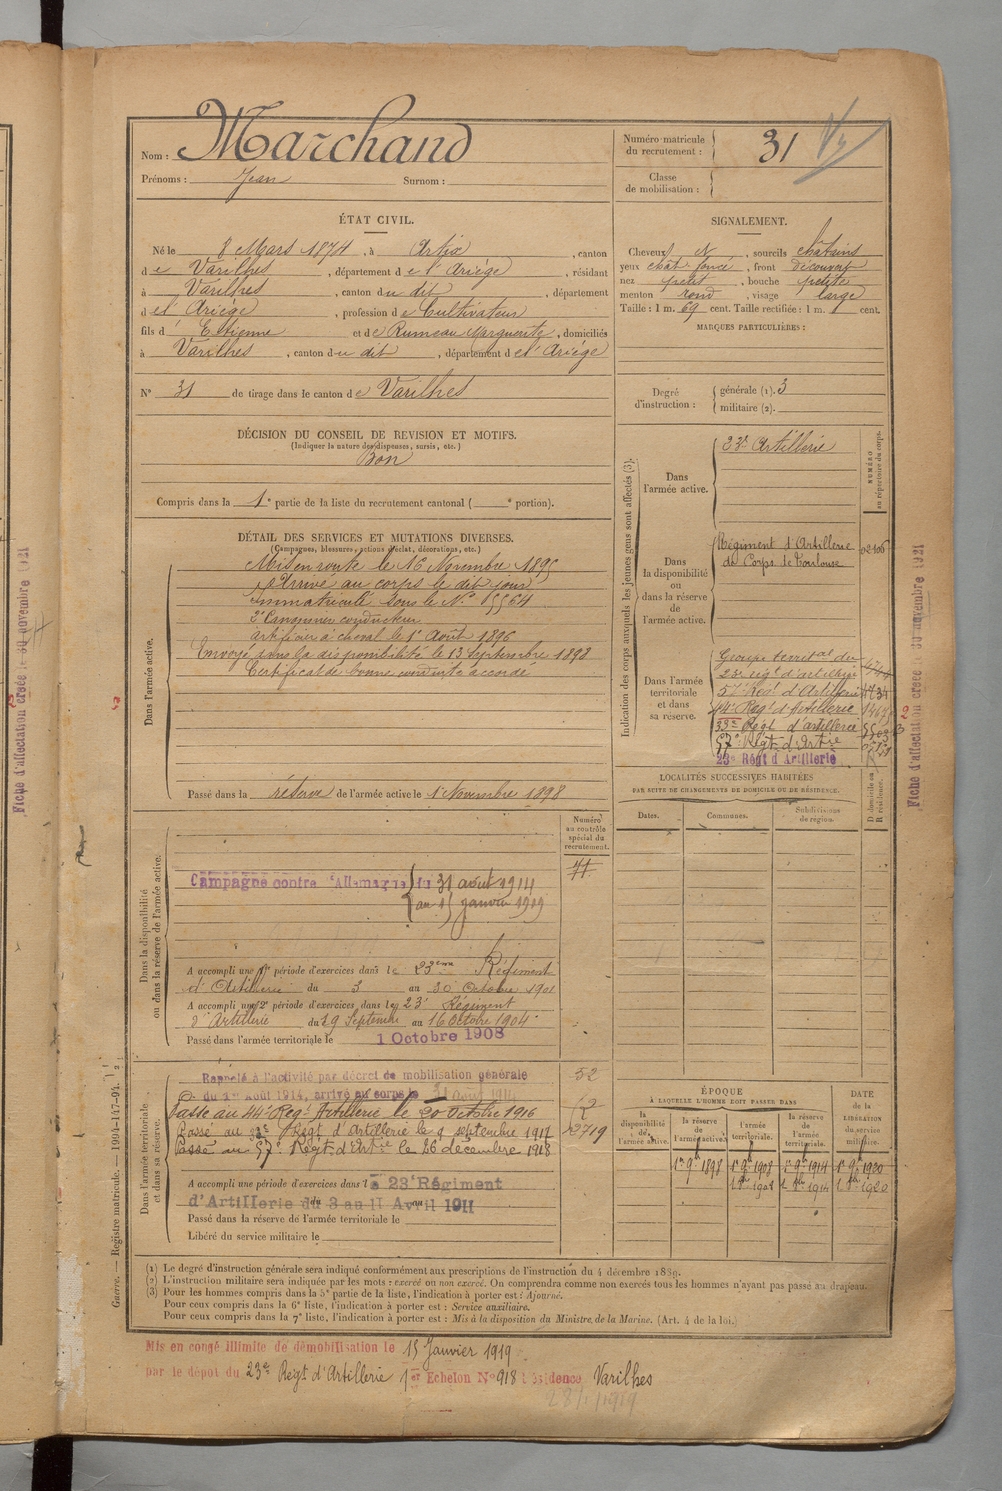 Nom : Marchand
Prénoms : Jean Surnom :
Numéro matricule du recrutement : 31
Classe de mobilisation :
ÉTAT CIVIL.
Né le 8 Mars 1874, à Artix, canton
de Varilhes, département de l'Ariège, résidant
à Varilhes, canton du dit, département
de l'Ariège, profession de Cultivateur
fils d' Etienne et de Rumeau Marguerite, domiciliés
à Varilhes, canton du dit, département de l'Ariège
N° 31 de tirage dans le canton de Varilhes
SIGNALEMENT.
Cheveux N, sourcils châtains
yeux chât foncé, front découvert
nez petit, bouche petite
menton rond, visage large
Taille : 1 m. 69 cent. Taille rectifiée : 1 m. cent.
MARQUES PARTICULIÈRES :
Degré d'instruction : générale (1). 3
militaire (2).
DÉCISION DU CONSEIL DE REVISION ET MOTIFS.
(Indiquer la nature des dispenses, sursis, etc.)
Bon
Compris dans la 1e partie de la liste du recrutement cantonal ( e portion).
DÉTAIL DES SERVICES ET MUTATIONS DIVERSES.
(Campagnes, blessures, actions d'éclat, décorations, etc.)
Dans l'armée active.
Mis en route le 16 Novembre 1895
Arrivé au corps le dit jour
Immatriculé sous le N°
2e Canonnier conducteur
artificier à cheval le 1er Août 1896
Envoyé dans la disponibilité le 13 Septembre 1898
Certificat de bonne conduite accordé
Passé dans la réserve de l'armée active le 1 Novembre 1898
Indication des corps auxquels les jeunes gens sont affectés (3).
NUMÉRO au répertoire du corps.
Dans l'armée active.
23e Artillerie
Dans la disponibilité ou dans la réserve de l'armée active.
Régiment d'Artillerie
de Corps de Toulouse
02106
Dans l'armée territoriale et dans sa réserve.
Groupe territal du
23e rég't d'artillerie
57 Rég't d'Artillerie
44e Régt d'Artillerie
33e Régt d'artillerie
57e Régt d'Artie
23e Régt d'Artillerie
LOCALITÉS SUCCESSIVES HABITÉES
PAR SUITE DE CHANGEMENTS DE DOMICILE OU DE RÉSIDENCE.
Dates. Communes. Subdivisions de région. D domicile ou R résidence.
Dans la disponibilité ou dans la réserve de l'armée active.
Numéro au contrôle spécial du recrutement.
Campagne contre l'Allemagne du 31 août 1914
au 15 janvier 1919
A accompli une 1re période d'exercices dans le 23eme Régiment
d'Artillerie du 3 au 30 Octobre 1901
A accompli une 2e période d'exercices dans le 23e Régiment
d'Artillerie du 19 Septembre au 16 Octobre 1904
Passé dans l'armée territoriale le 1 Octobre 1908
Dans l'armée territoriale et dans sa réserve.
Rappelé à l'activité par décret de mobilisation générale
du 1er Août 1914, arrivé au corps le 31 août 1914
52
Passé au 44e Rég't Artillerie le 20 Octobre 1916
Passé au 33e Régt d'Artillerie le 9 septembre 1917
2719
Passé au 57e Régt d'Artie le 26 décembre 1918
A accompli une période d'exercices dans le 23e Régiment
d'Artillerie du 3 au 11 Avril 1911
Passé dans la réserve de l'armée territoriale le
Libéré du service militaire le
ÉPOQUE
À LAQUELLE L'HOMME DOIT PASSER DANS
DATE de la LIBÉRATION DU SERVICE militaire.
la disponibilité de l'armée active. la réserve de l'armée active. l'armée territoriale. la réserve de l'armée territoriale.
1er 9bre 1898 1er 9bre 1908 1er 9bre 1914 1er 9bre 1920
(1) Le degré d'instruction générale sera indiqué conformément aux prescriptions de l'instruction du 4 décembre 1889.
(2) L'instruction militaire sera indiquée par les mots : exercé ou non exercé. On comprendra comme non exercés tous les hommes n'ayant pas passé au drapeau.
(3) Pour les hommes compris dans la 5e partie de la liste, l'indication à porter est : Ajourné.
Pour ceux compris dans la 6e liste, l'indication à porter est : Service auxiliaire.
Pour ceux compris dans la 7e liste, l'indication à porter est : Mis à la disposition du Ministre de la Marine. (Art. 4 de la loi.)
Mis en congé illimité de démobilisation le 15 Janvier 1919
par le dépot du 23e Régt d'Artillerie 1er Echelon N° 918 Résidence Varilhes
28/1/1919
Guerre. — Registre matricule. — 1994-147-94.
Fiche d'affectation créée le 30 novembre 1921
Fiche d'affectation créée le 30 novembre 1921